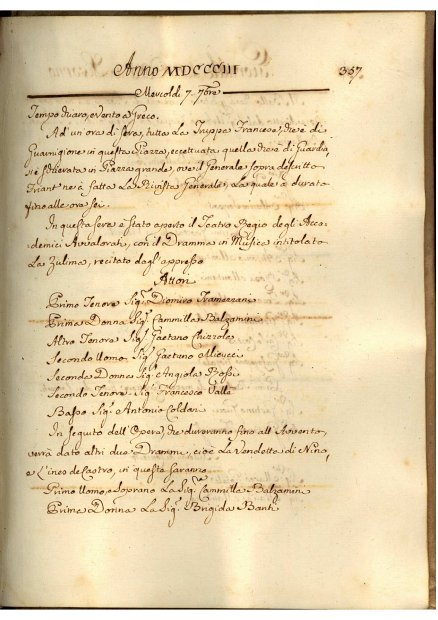 Anno MDCCCIII
357.
Mercoldi 7. 7bre
Tempo chiaro, e vento a Greco.
Ad' un'ora di sera, tutta La Truppa Francese, che è di
Guarnigione in questa Piazza, eccettuata quella che è di Guardia,
si è schierata in Piazza grande, ove il Generale sopra descritto
ne à fatta La Rivista Generale, La quale a durato
fino alle ore sei.
In questa sera è stato aperto il Teatro Regio degl' Acca-
demici Avvalorati, con il Dramma in Musica intitolato
La Zulima, recitato dagl' appresso
Attori
Primo Tenore Sig.r Domenico Tramezzani
Prima Donna Sig.ra Cammilla Balzamini
Altro Tenore Sig.r Gaetano Chizzola
Secondo Uomo Sig.r Gaetano
Seconda Donna Sig.ra Angiola Bossi
Secondo Tenore Sig.r Francesco Valle
Basso Sig.r Antonio Coldani
In seguito dell' Opera, che dureranno fino all' Avvento,
verrà dato altri due Drammi, cioè La Vendetta di Nino,
e L'ines de Castro, in questa saranno
Primo Uomo, e Soprano La Sig.ra Cammilla Balzamini
Prima Donna La Sig.ra Brigida Banti